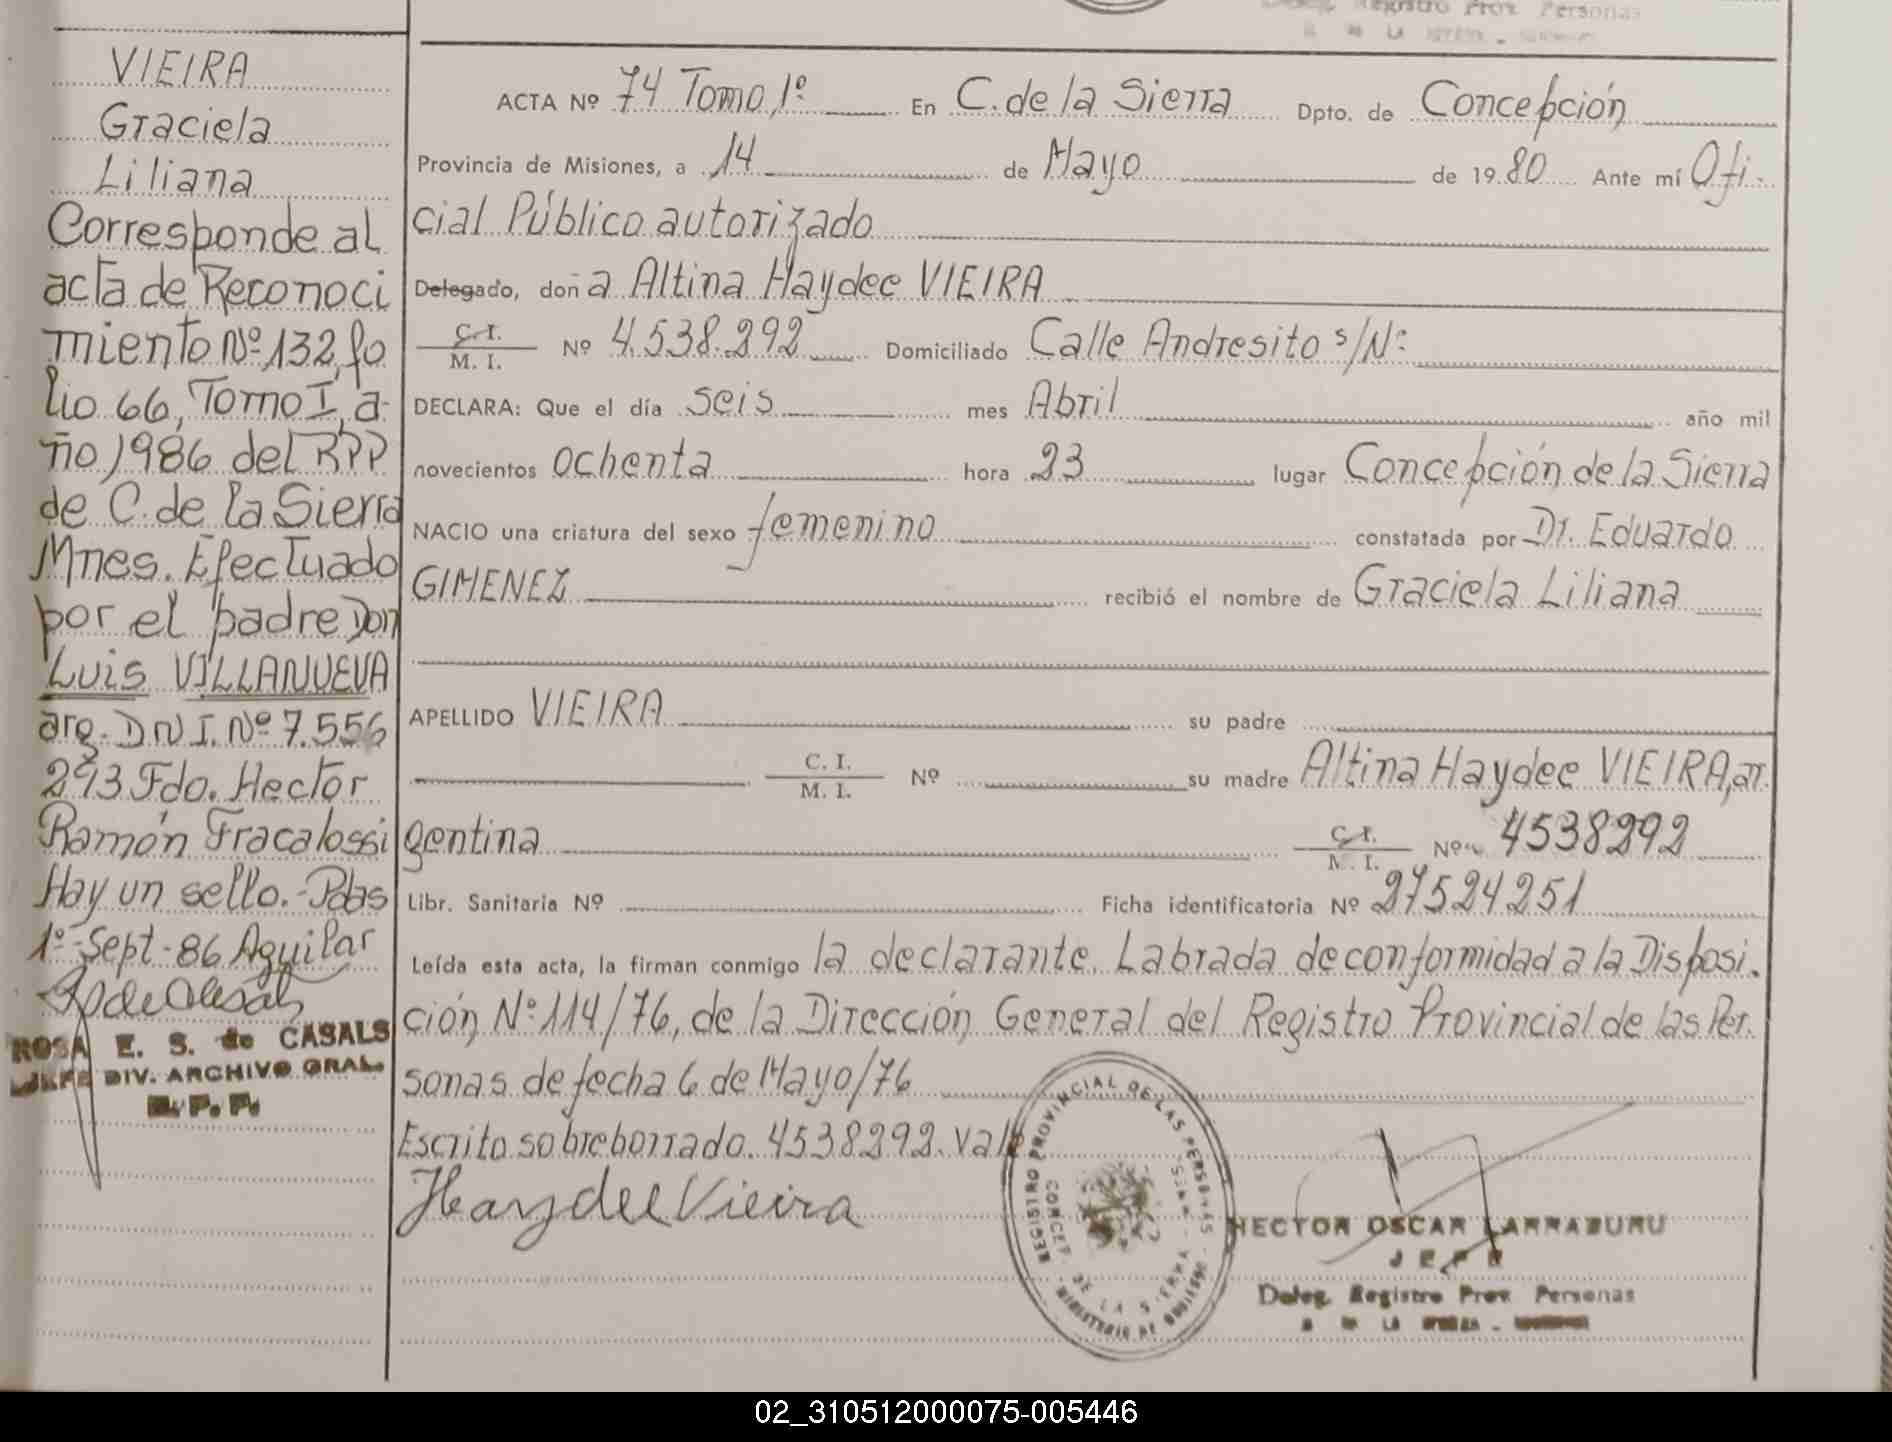 VIEIRA
Graciela
Liliana
Corresponde al
acta de Reconoci
miento Nº 132, fo
lio 66, Tomo I, a-
ño 1986 del RPP
de C. de la Sierra
Mnes. Efectuado
por el padre Don
Luis VILLANUEVA
arg. DNI. Nº 7.556
293 Fdo. Hector
Ramón Fracalossi
Hay un sello.- Pdas
1º-Sept-86 Aguilar
ROSA E. S. de CASALS
JEFE DIV. ARCHIVO GRAL.
R. P. P.
Deleg. Registro Prov. Personas
ACTA Nº 74 Tomo 1º En C. de la Sierra Dpto. de Concepción
Provincia de Misiones, a 14 de Mayo de 1980 Ante mí Ofi-
cial Público autorizado
Delegado, doña Altina Haydee VIEIRA
C. I.
M. I. Nº 4.538.292 Domiciliado Calle Andresito s/Nº
DECLARA: Que el día seis mes Abril año mil
novecientos ochenta hora 23 lugar Concepción de la Sierra
NACIO una criatura del sexo femenino constatada por Dr. Eduardo
GIMENEZ recibió el nombre de Graciela Liliana
APELLIDO VIEIRA su padre
C. I.
M. I. Nº su madre Altina Haydee VIEIRA, ar-
gentina C. I.
M. I. Nº 4538292
Libr. Sanitaria Nº Ficha identificatoria Nº 27524251
Leída esta acta, la firman conmigo la declarante. Labrada de conformidad a la Disposi-
ción Nº 114/76, de la Dirección General del Registro Provincial de las Per-
sonas de fecha 6 de Mayo/76
Escrito sobreborrado. 4538292. Vale
Haydee Vieira
REGISTRO PROVINCIAL DE LAS PERSONAS
CONCEP. DE LA SIERRA - MNES.
MINISTERIO DE GOBIERNO
HECTOR OSCAR LARRABURU
JEFE
Deleg. Registro Prov. Personas
02_310512000075-005446